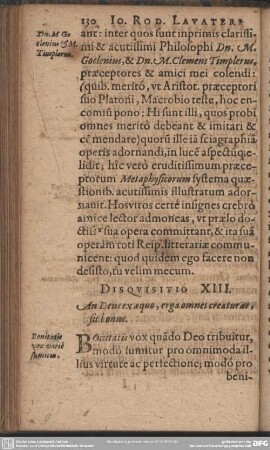 130 IO. ROD. LAVATERI
Dn. M Go-
clenius & M.
Timplerus.
ant: inter quos sunt inprimis clarissi-
mi & acutissimi Philosophi Dn. M.
Goclenius, & Dn. M. Clemens Timplerus,
præceptores & amici mei colendi:
(quib. meritò, vt Aristot. præceptori
suo Platoni, Macrobio teste, hoc en-
comiũ pono; Hi sunt illi, quos probi
omnes meritò debeant & imitari &
cõmendare) quorũ ille iã sciagraphiã
operis adornandi, in lucẽ aspectũque
dedit; hîc verò eruditissimum præce-
ptorum Metaphysicorum systema quæ-
stionib. acutissimis illustratum ador-
nauit. Hos viros certè insignes crebrò
amice lector admoneas, vt prælo do-
ctiss. sua opera committant, & ita suã
operam toti Reip. litterariæ commu-
nicent: quod quidem ego facere non
desisto, tu velim mecum.
DISQVISITIO XIII.
An Deus ex æquo, erga omnes creaturas,
sit bonus.
Bonitatis
vox variè
sumitur.
Bonitatis vox quãdo Deo tribuitur,
modò sumitur pro omnimoda il-
lius virtute ac perfectione; modò pro
beni-